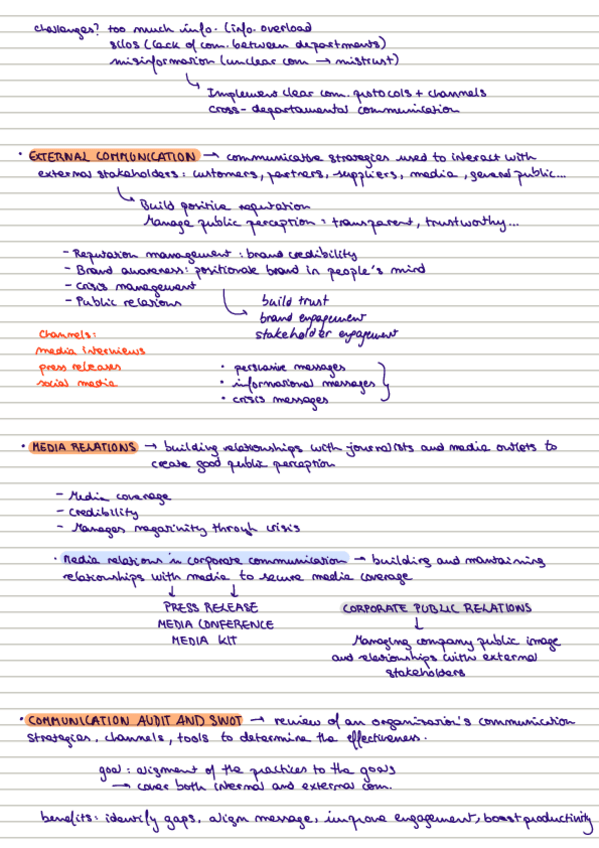 challenges? too much info. (info. overload
silos (lack of com. between departments)
misinformation (unclear com → mistrust)
↳ Implement clear com. protocols + channels
cross-departamental communication
· EXTERNAL COMMUNICATION → communicative strategies used to interact with
external stakeholders: customers, partners, suppliers, media, general public...
↳ Build positive reputation
Manage public perception: transparent, trustworthy...
- Reputation management: brand credibility
- Brand awareness: positionate brand in people's mind
- Crisis management
- Public relations
↳ build trust
brand engagement
stakeholder engagement
Channels:
media interviews
press releases
social media
· persuasive messages
· informational messages
· crisis messages
· MEDIA RELATIONS → building relationships with journalists and media outlets to
create good public perception
- Media coverage
- Credibility
- Manages negativity through crisis
· Media relations in corporate communication → building and mantaining
relationships with media to secure media coverage
↓ ↓
PRESS RELEASE
MEDIA CONFERENCE
MEDIA KIT
CORPORATE PUBLIC RELATIONS
↓
Managing company public image
and relationships with external
stakeholders
· COMMUNICATION AUDIT AND SWOT → review of an organization's communication
strategies, channels, tools to determine the effectiveness.
goal: aligment of the practices to the goals
→ cover both internal and external com.
benefits: identify gaps, align message, improve engagement, boost productivity